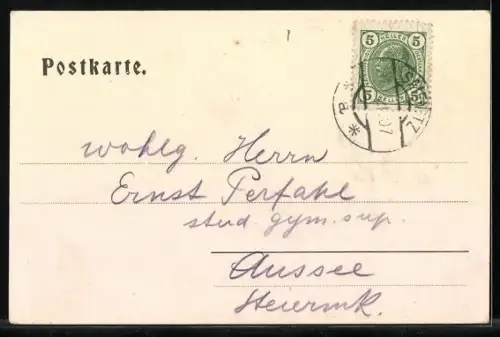 Postkarte.
5 HELLER 5
wohlg. Herrn
Ernst Perfahl
stud. gym. sup.
Aussee
Steiermk.